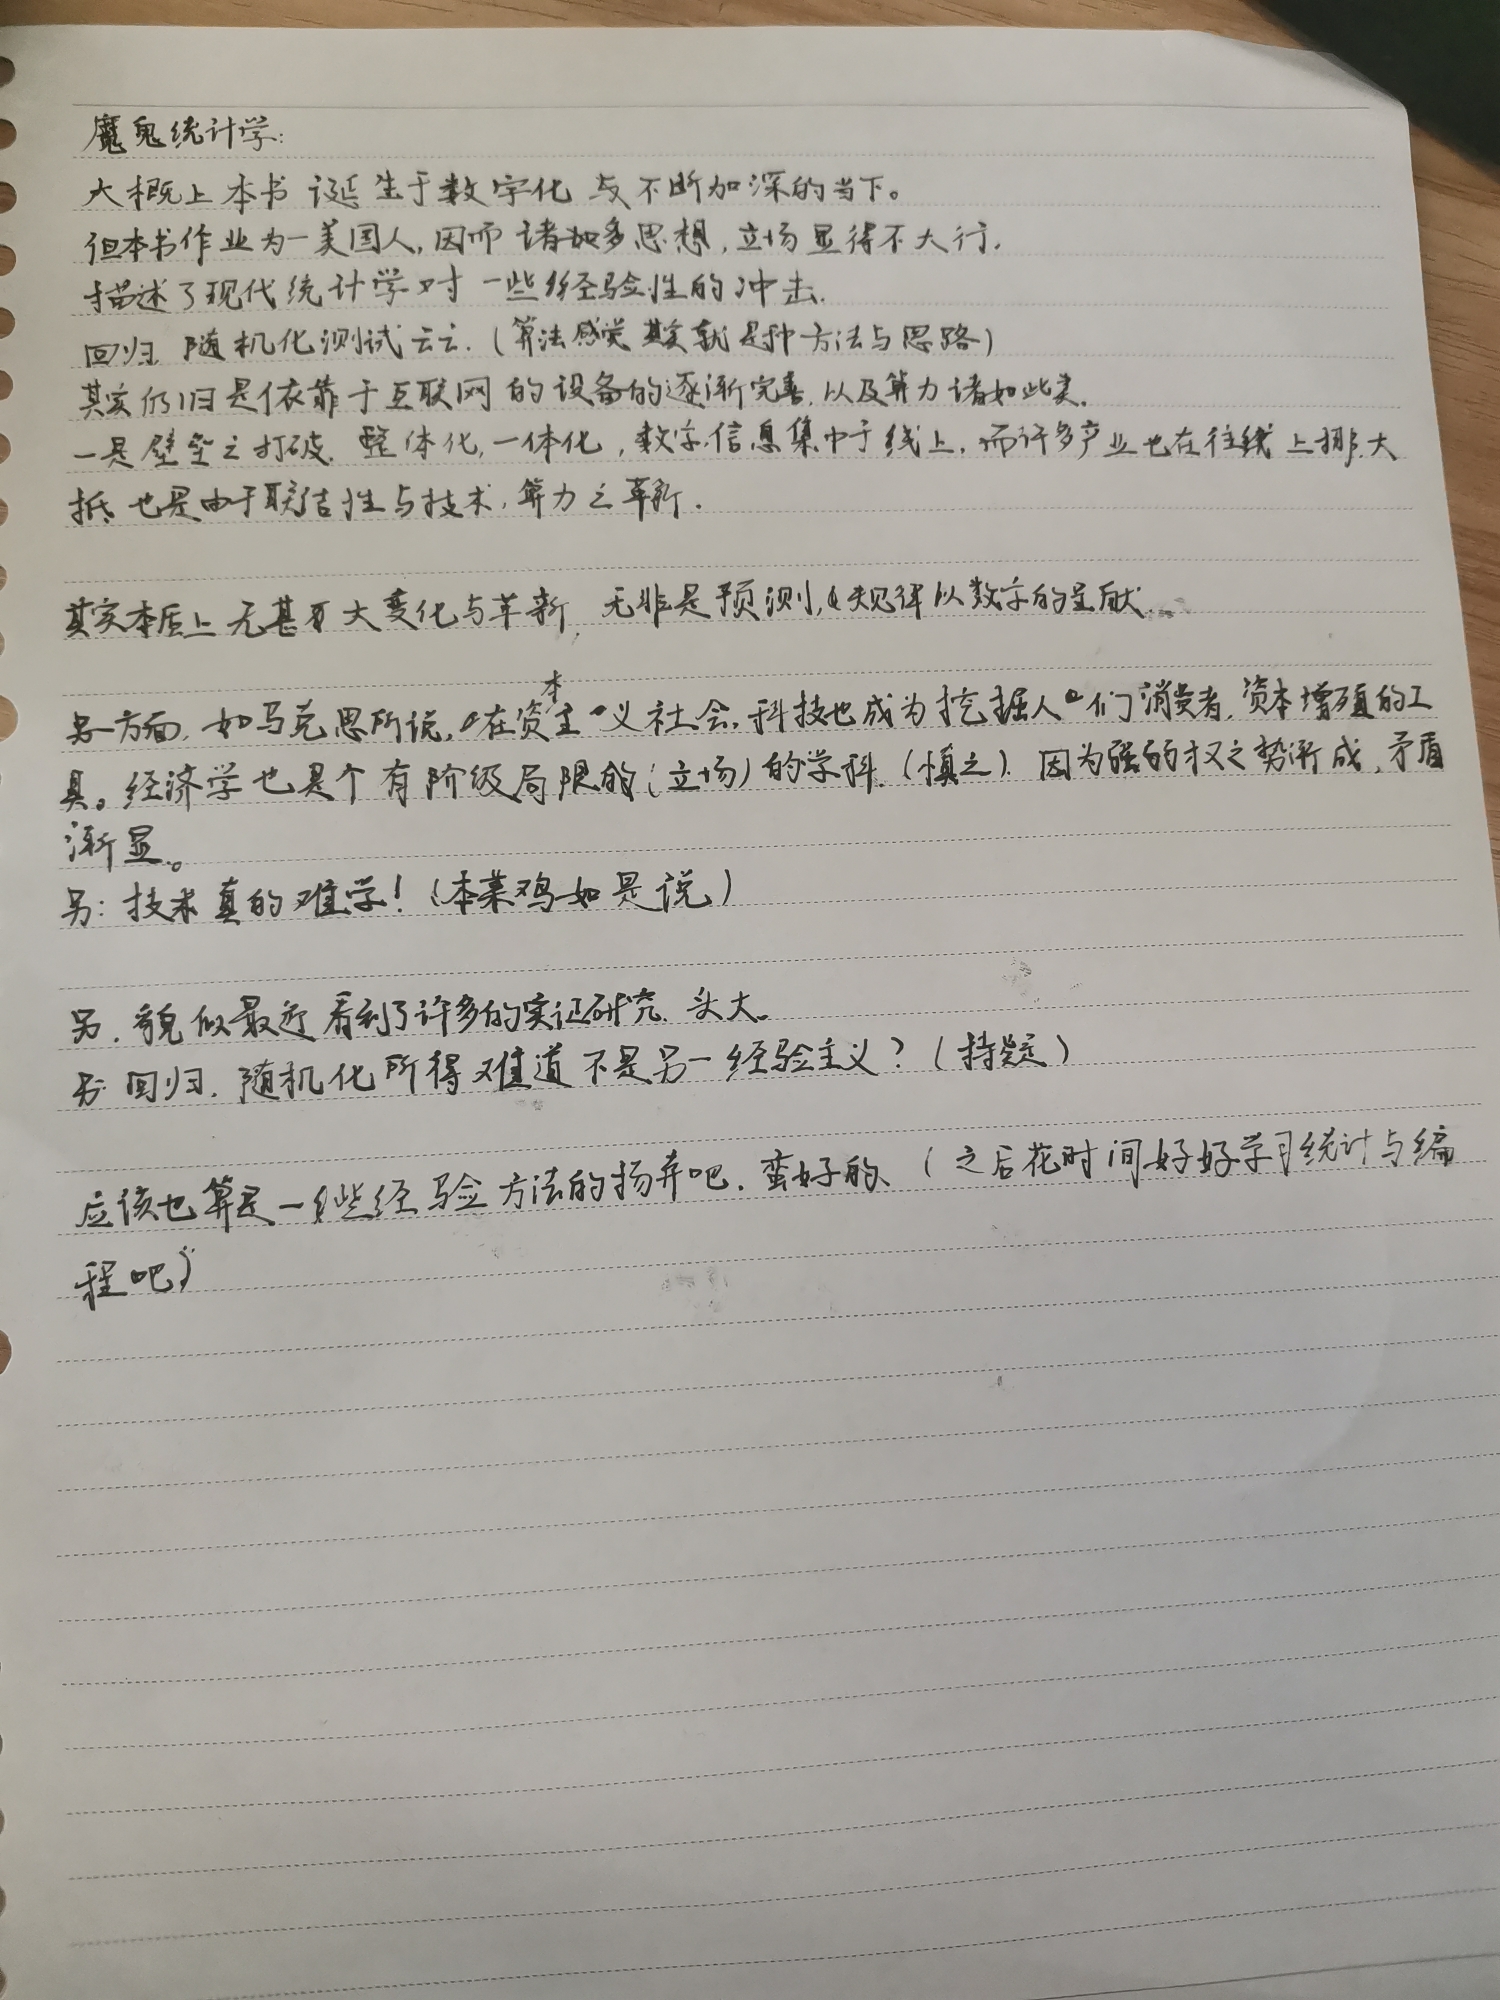 魔鬼统计学:
大概上本书诞生于数字化与不断加深的当下。
但本书作业为一美国人,因而诸如多思想,立场显得不大行.
描述了现代统计学对一些经验性的冲击.
回归.随机化测试云云.(算法感觉其实就是种方法与思路)
其实仍归是依靠于互联网的设备的逐渐完善.以及算力诸如此类.
一是壁垒之打破.整体化,一体化,数字.信息集中于线上.而许多产业也在往线上挪.大
抵也是由于联结性与技术,算力之革新.
其实本质上无甚大变化与革新,无非是预测,规律以数字的呈献.
另一方面,如马克思所说,在资本主义社会,科技也成为挖掘人们消费者,资本增殖的工
具。经济学也是个有阶级局限的(立场)的学科.(慎之).因为强弱权之势渐成,矛盾
渐显。
另:技术真的难学!(本菜鸡如是说)
另.貌似最近看到了许多的实证研究.头大。
另:回归.随机化所得难道不是另一经验主义?(持疑)
应该也算是一些经验方法的扬弃吧.蛮好的、(之后花时间好好学习统计与编
程吧)